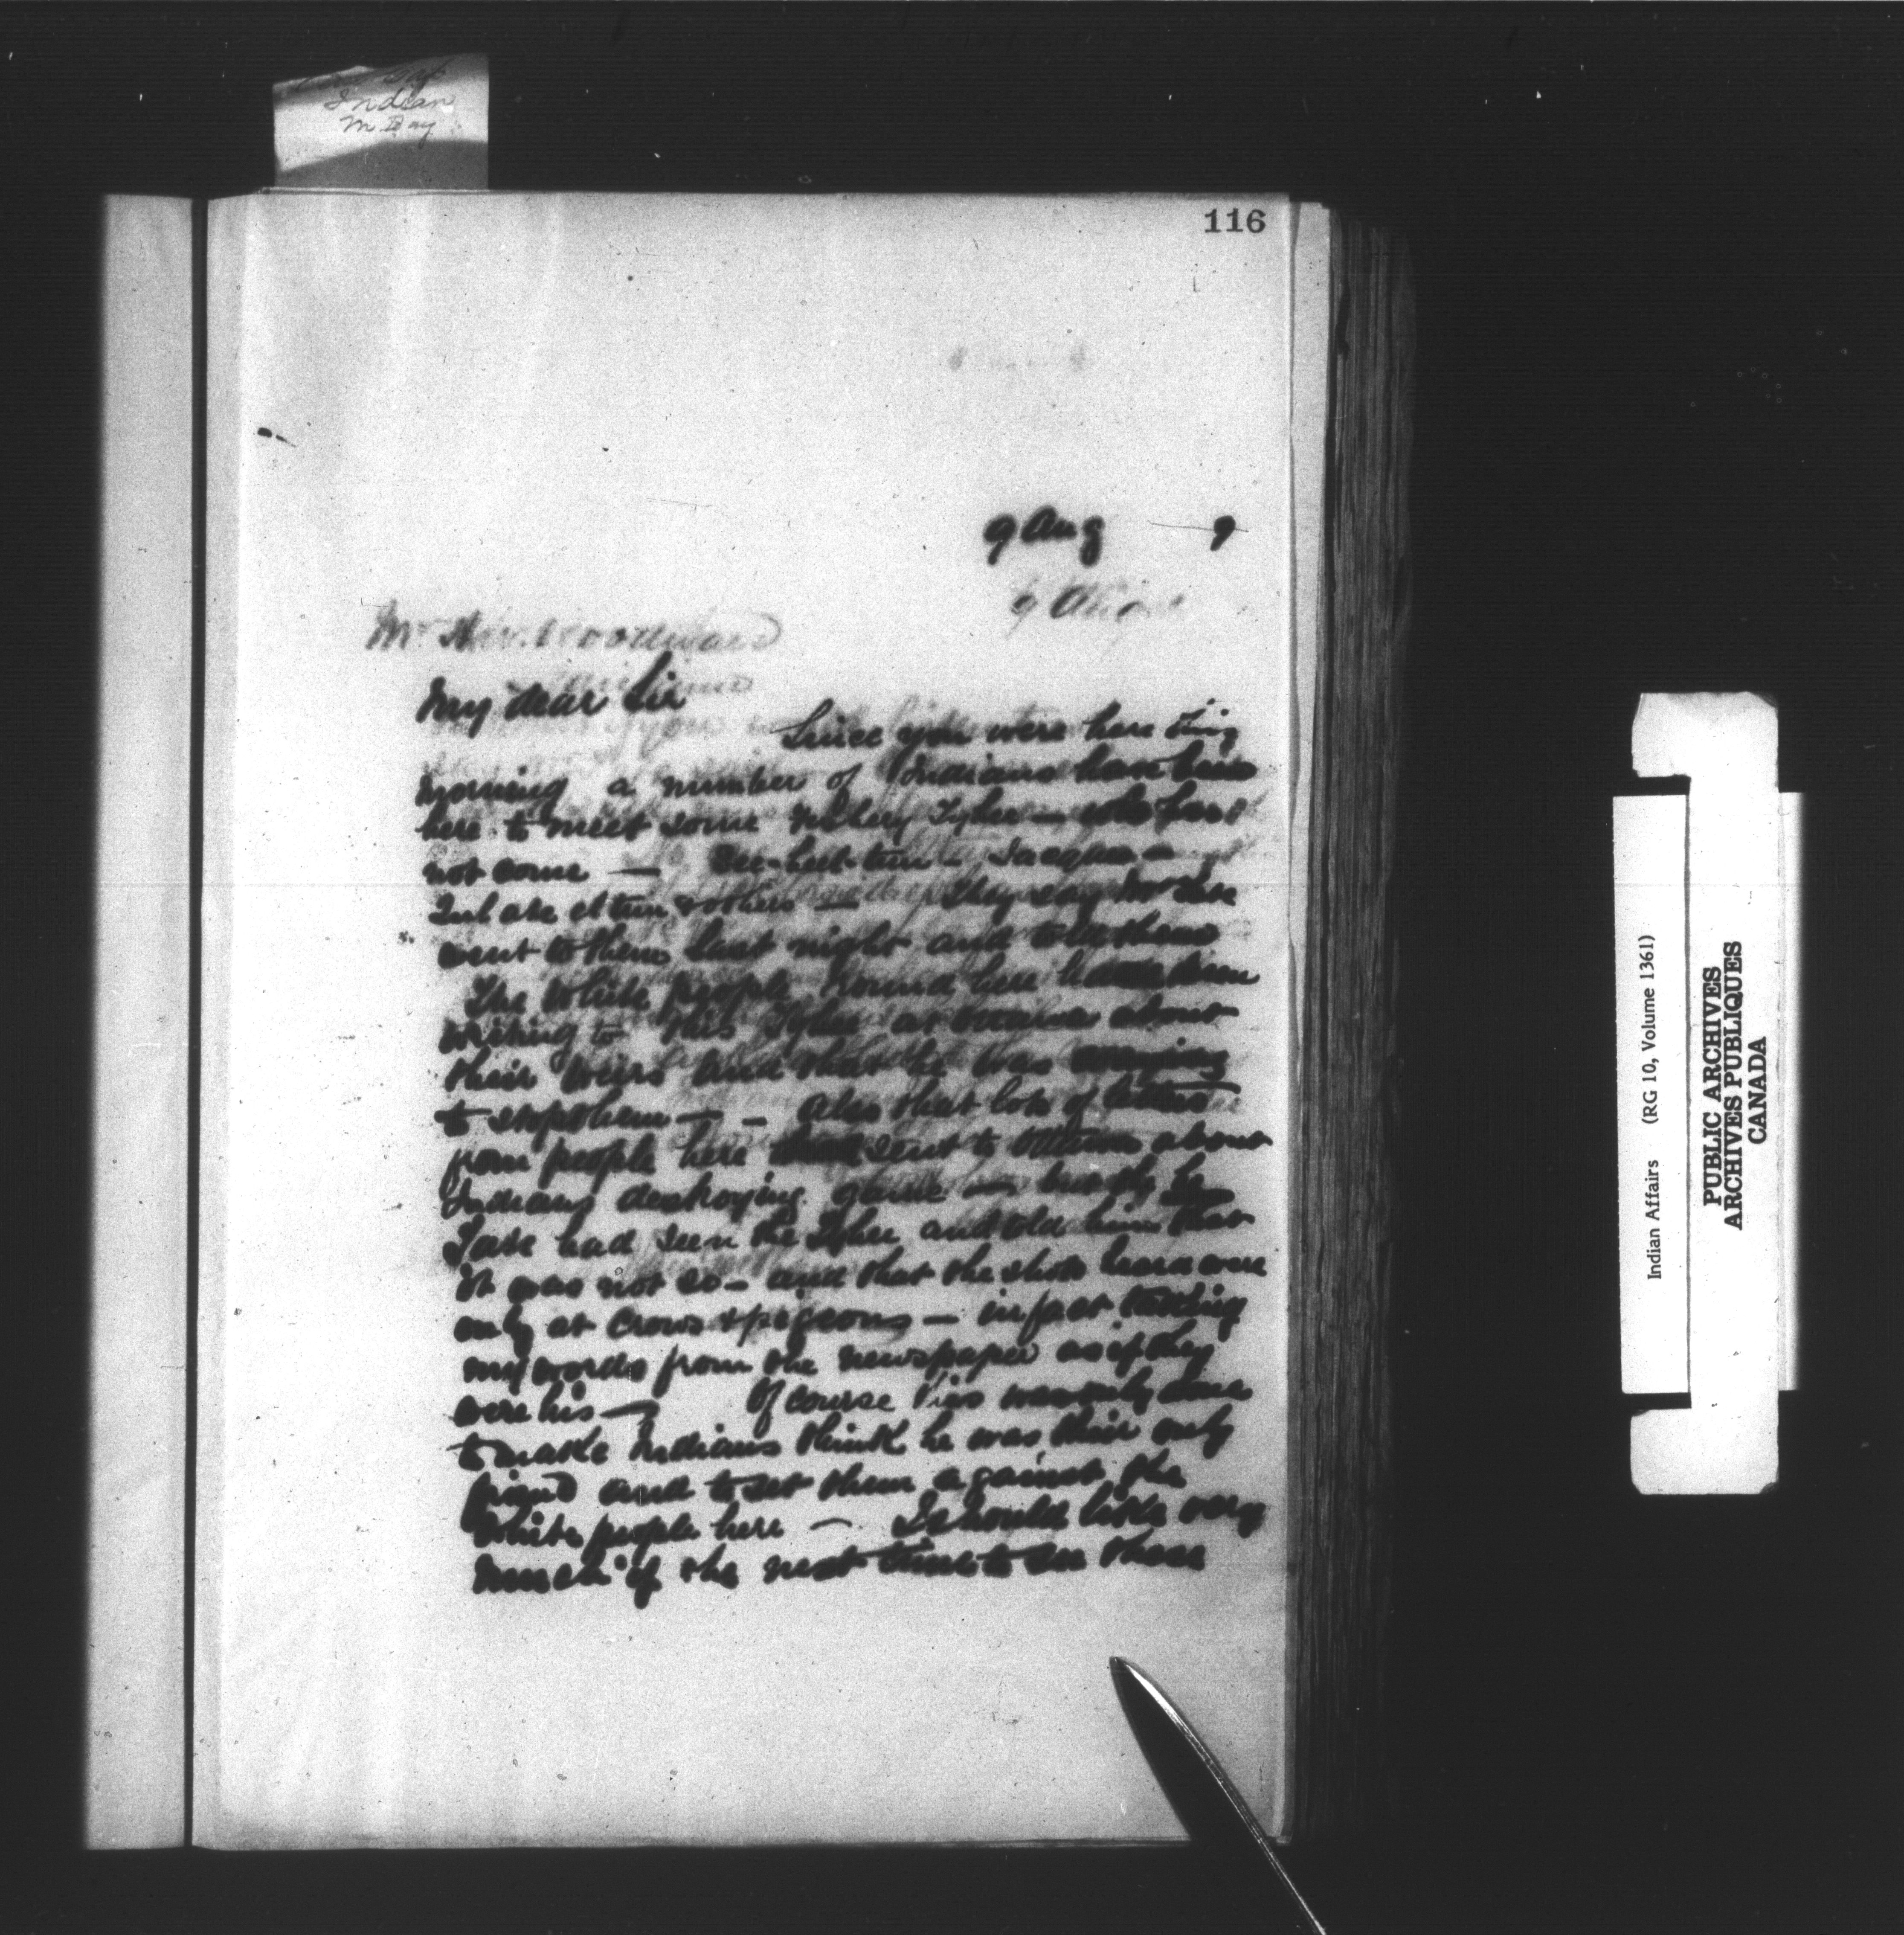 Indian
116
9 Aug 9
My dear Sir
Since you were here this
morning a number of Indians have been
here to meet some Tyhee — who has
not come —
others — They say Mr
went to them last night and told them
The White people round here have been
writing to this Tyhee at Ottawa about
their weirs and that he was coming
to stop them — — also that lots of letters
from people here sent to Ottawa about
Indians destroying game —
had seen the Tyhee and told him that
it was not so — and that the shots heard were
only at crows & pigeons — in fact taking
my words from the newspaper as if they
were his — Of course this was only done
to make Indians think he was their only
friend and to set them against the
White people here — I should like very
much if the next time to see these
Indian Affairs (RG 10, Volume 1361)
PUBLIC ARCHIVES
ARCHIVES PUBLIQUES
CANADA